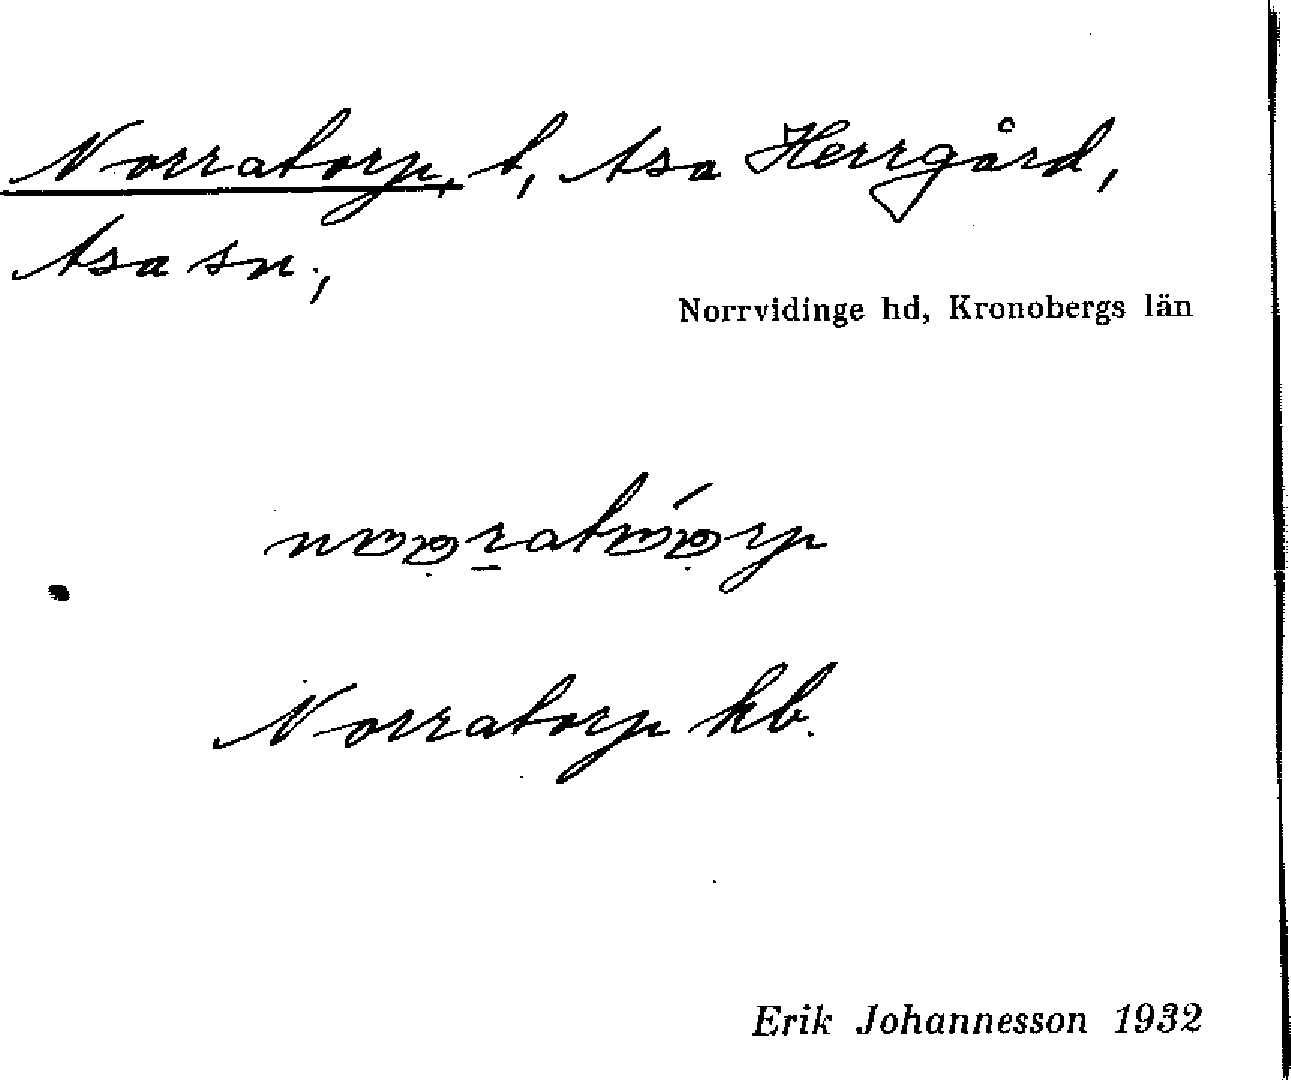 Norratorp, t, Asa Herrgård,
Asa sn.,
Norrvidinge hd, Kronobergs län
Norratorp kb.
Erik Johannesson 1932